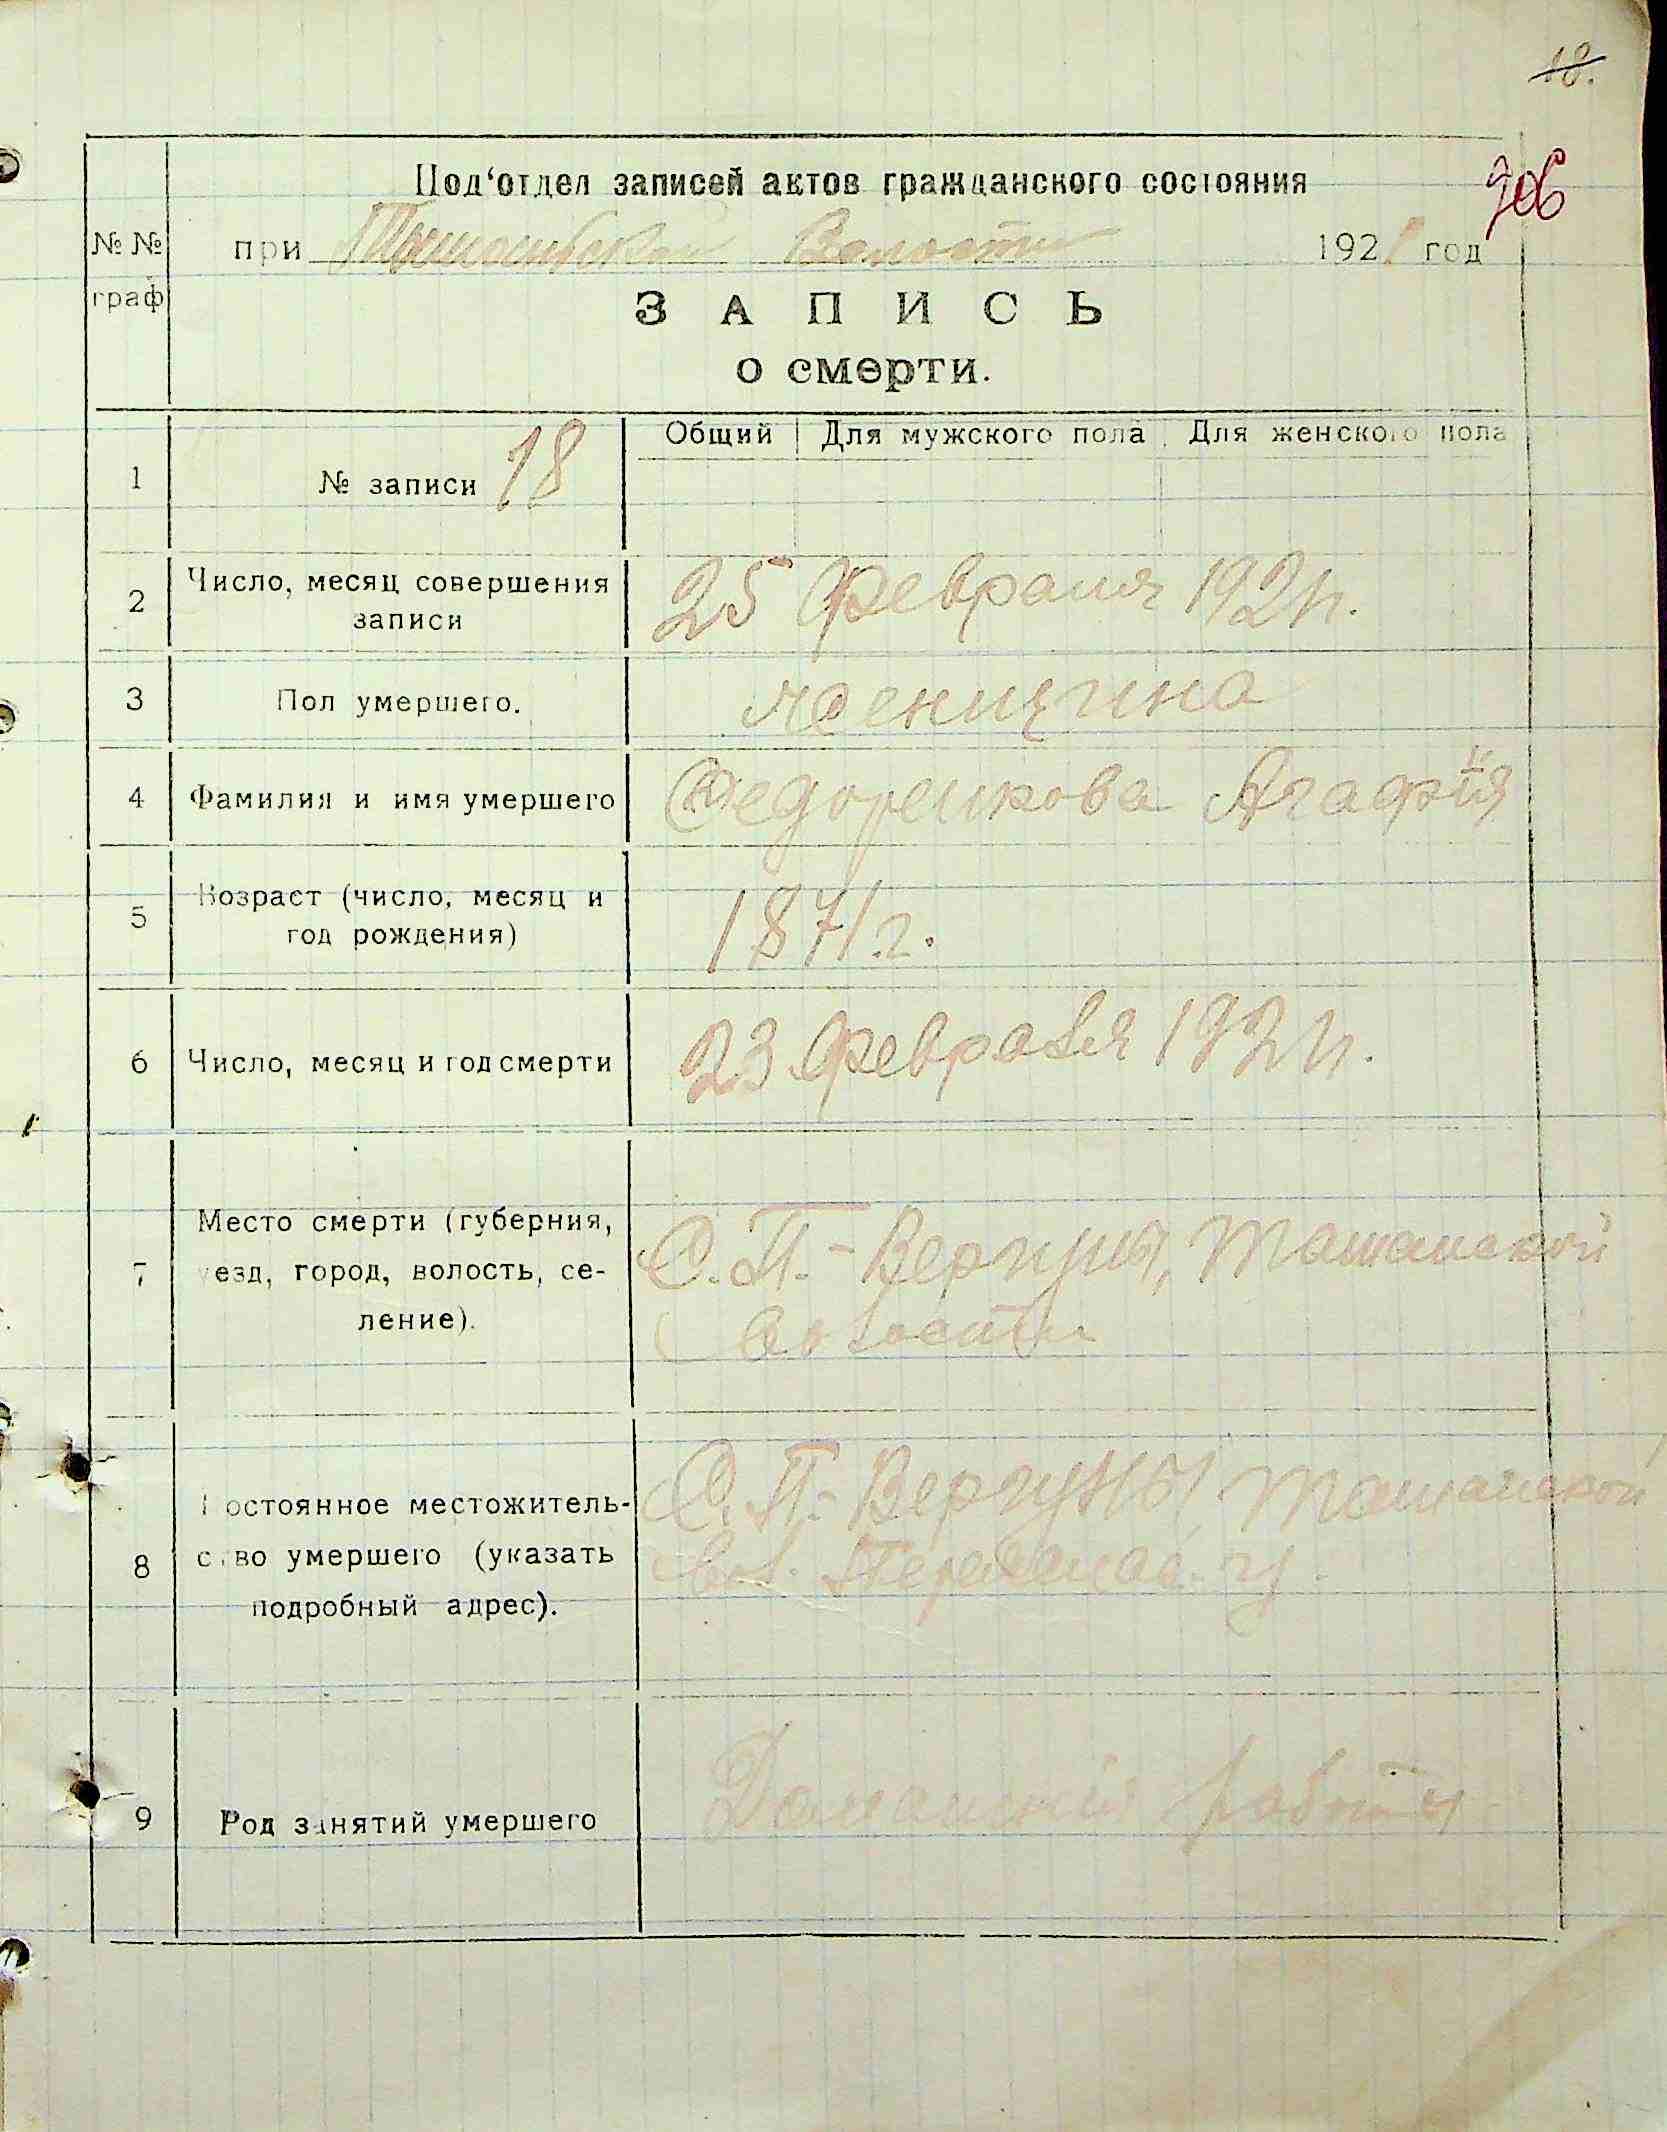 18.
Под‘отдел записей актов гражданского состояния
906
№ № при Волости 1921 год
граф
ЗАПИСЬ
о смерти.
1 № записи 18 Общий Для мужского пола Для женского пола
2 Число, месяц совершения
записи
25 Февраля 1921г.
3 Пол умершего. женщина
4 Фамилия и имя умершего Федоренкова Агафія
5 Возраст (число, месяц и
год рождения)
1871г.
6 Число, месяц и год смерти 23 Февраля 1921г.
7 Место смерти (губерния,
уезд, город, волость, се-
ление).
С. П.-Вергуны, Ташанской
волости
8 Постоянное местожитель-
ство умершего (указать
подробный адрес).
С. П.-Вергуны Ташанской
вол. у.
9 Род занятий умершего работы